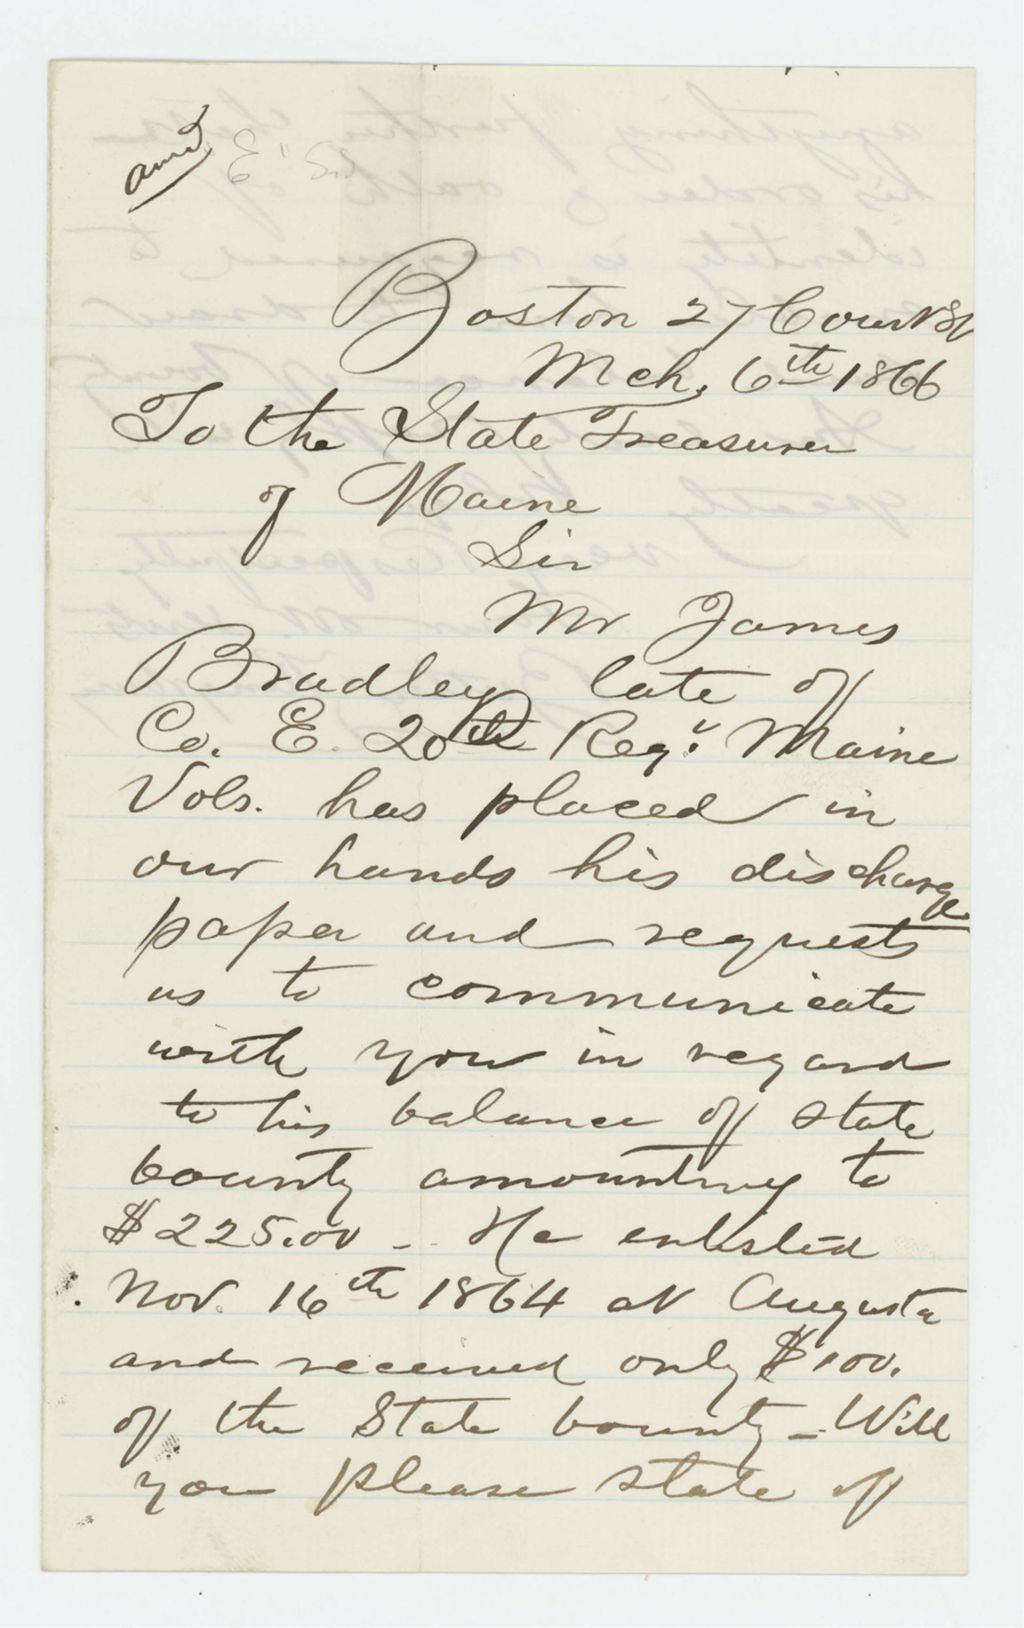 ansd
Boston 27 Court St
Mch. 6th 1866
To the State Treasurer
of Maine
Sir
Mr James
Bradley late of
Co. E. 20th Reg. Maine
Vols. has placed in
our hands his discharge
paper and requests
us to communicate
with you in regard
to his balance of state
bounty amounting to
$225.00 - He enlisted
Nov. 16th 1864 at Augusta
and received only $100.
of the State bounty - Will
you please state if